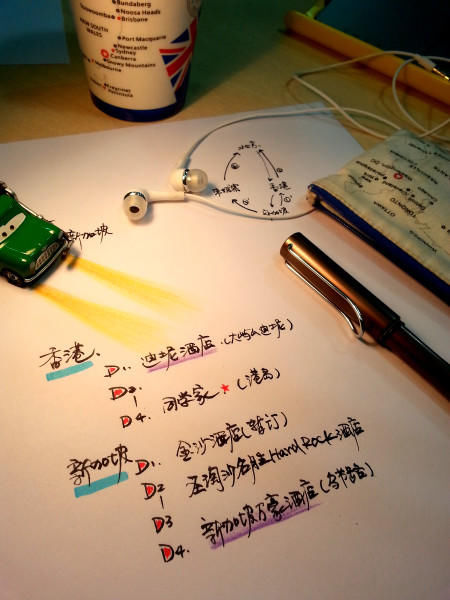 Bundaberg
Noosa Heads
Toowoomba
Brisbane
NEW SOUTH
WALES
Port Macquarie
Newcastle
Sydney
Canberra
Snowy Mountains
Melbourne
Peninsula
香港
新加坡
OTTAWA
TORONTO
新加坡
香港.
D1. 迪士尼酒店.(大屿山迪士尼)
D2
|
D4. 同学家★(港岛)
新加坡 D1. 金沙酒店(暂订)
D2 圣淘沙名胜Hard Rock酒店
|
D3
D4. 新加坡万豪酒店(乌节路)